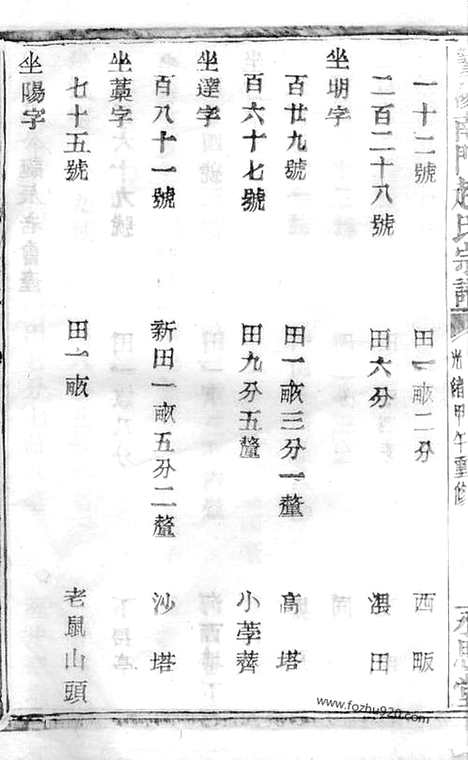 南門趙氏宗譜 光緒甲午重修 永思堂
一十二號 田一畝二分 西畈
二百二十八號 田六分 畈田
坐堋字
百廿九號 田一畝三分一釐 高塔
百六十七號 田九分五釐 小荸薺
坐達字
百八十一號 新田一畝五分二釐 沙塔
坐藁字
七十五號 田一畝 老鼠山頭
坐陽字
www.fozhu920.com